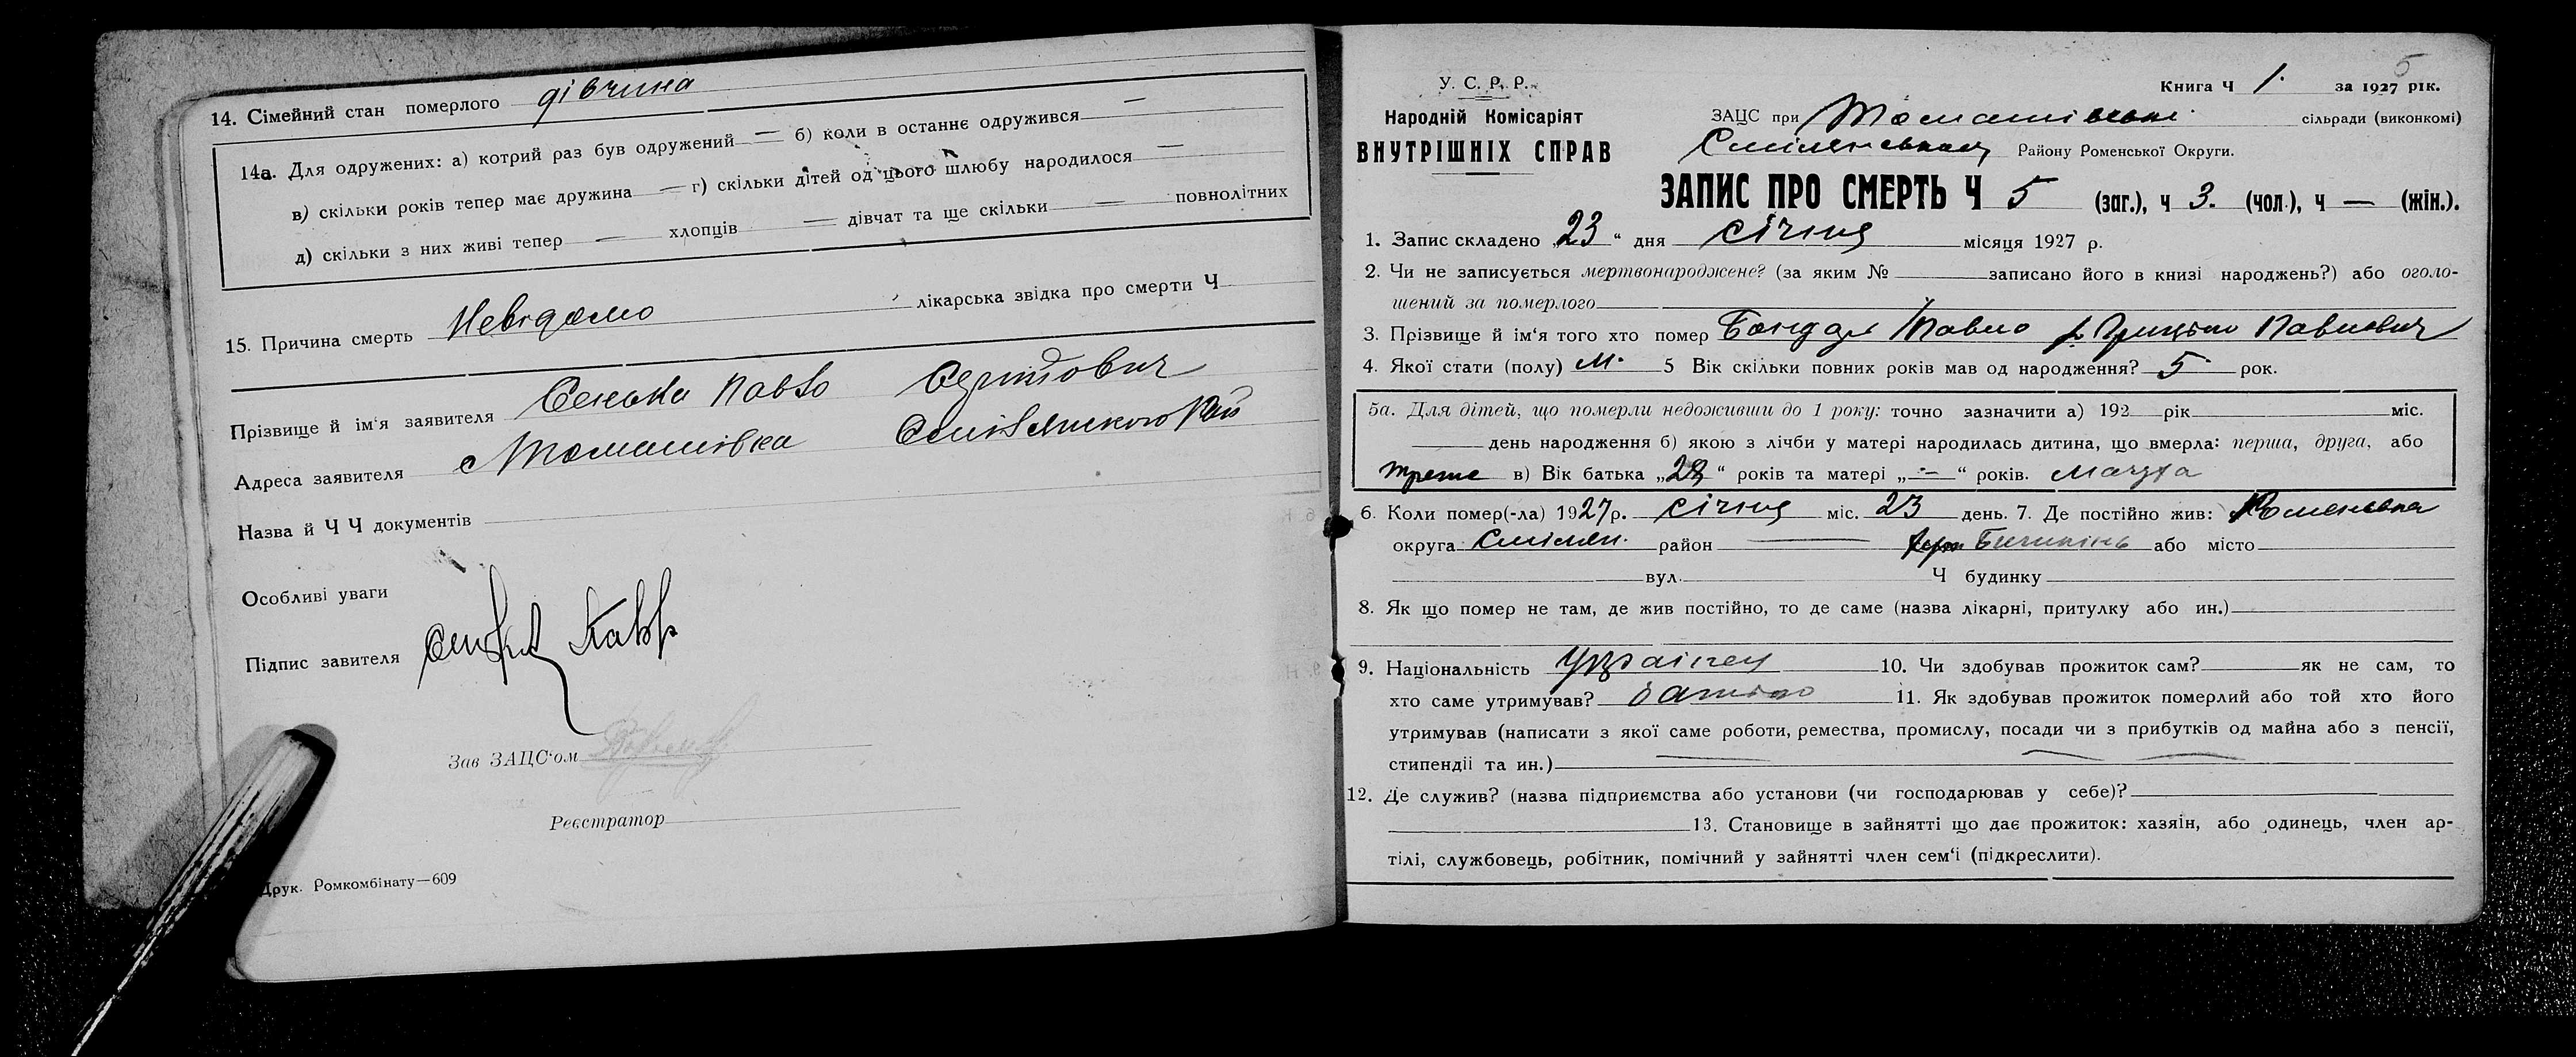 14. Сімейний стан померлого дівчина
14а. Для одружених: а) котрий раз був одружений — б) коли в останнє одружився —
в) скільки років тепер має дружина — г) скільки дітей од цього шлюбу народилося —
д) скільки з них живі тепер — хлопців — дівчат та ще скільки — повнолітних
15. Причина смерть Невідомо лікарська звідка про смерти Ч
Прізвище й ім'я заявителя Павло
Адреса заявителя с Томашівка Смілянского Рай
Назва й Ч Ч документів
Особливі уваги
Підпис завителя
Зав ЗАЦС'ом
Реєстратор
Друк. Ромкомбінату—609
5
У. С. Р. Р. Книга Ч 1. за 1927 рік.
Народній Комісаріят ЗАЦС при Томашівські сільради (виконкомі)
ВНУТРІШНІХ СПРАВ Району Роменської Округи.
ЗАПИС ПРО СМЕРТЬ Ч 5 (заг.), ч 3. (чол.), ч — (жін.).
1. Запис складено „23“ дня січня місяця 1927 р.
2. Чи не записується мертвонароджене? (за яким № записано його в книзі народжень?) або оголо-
шений за померлого
3. Прізвище й ім'я того хто помер Павло Павлович
4. Якої стати (полу) М. 5 Вік скільки повних років мав од народження? 5 рок.
5а. Для дітей, що померли недоживши до 1 року: точно зазначити а) 192 рік міс.
день народження б) якою з лічби у матері народилась дитина, що вмерла: перша, друга, або
третє в) Вік батька „28“ років та матері „—“ років. мачуха
6. Коли помер(-ла) 1927р. січня міс. 23 день. 7. Де постійно жив: Роменська
округа Смілян. район або місто
вул. Ч будинку
8. Як що помер не там, де жив постійно, то де саме (назва лікарні, притулку або ин.)
9. Національність Українец 10. Чи здобував прожиток сам? як не сам, то
хто саме утримував? батько 11. Як здобував прожиток померлий або той хто його
утримував (написати з якої саме роботи, ремества, промислу, посади чи з прибутків од майна або з пенсії,
стипендії та ин.)
12. Де служив? (назва підприємства або установи (чи господарював у себе)?
13. Становище в зайнятті що дає прожиток: хазяїн, або одинець, член ар-
тілі, службовець, робітник, помічний у зайнятті член сем'ї (підкреслити).